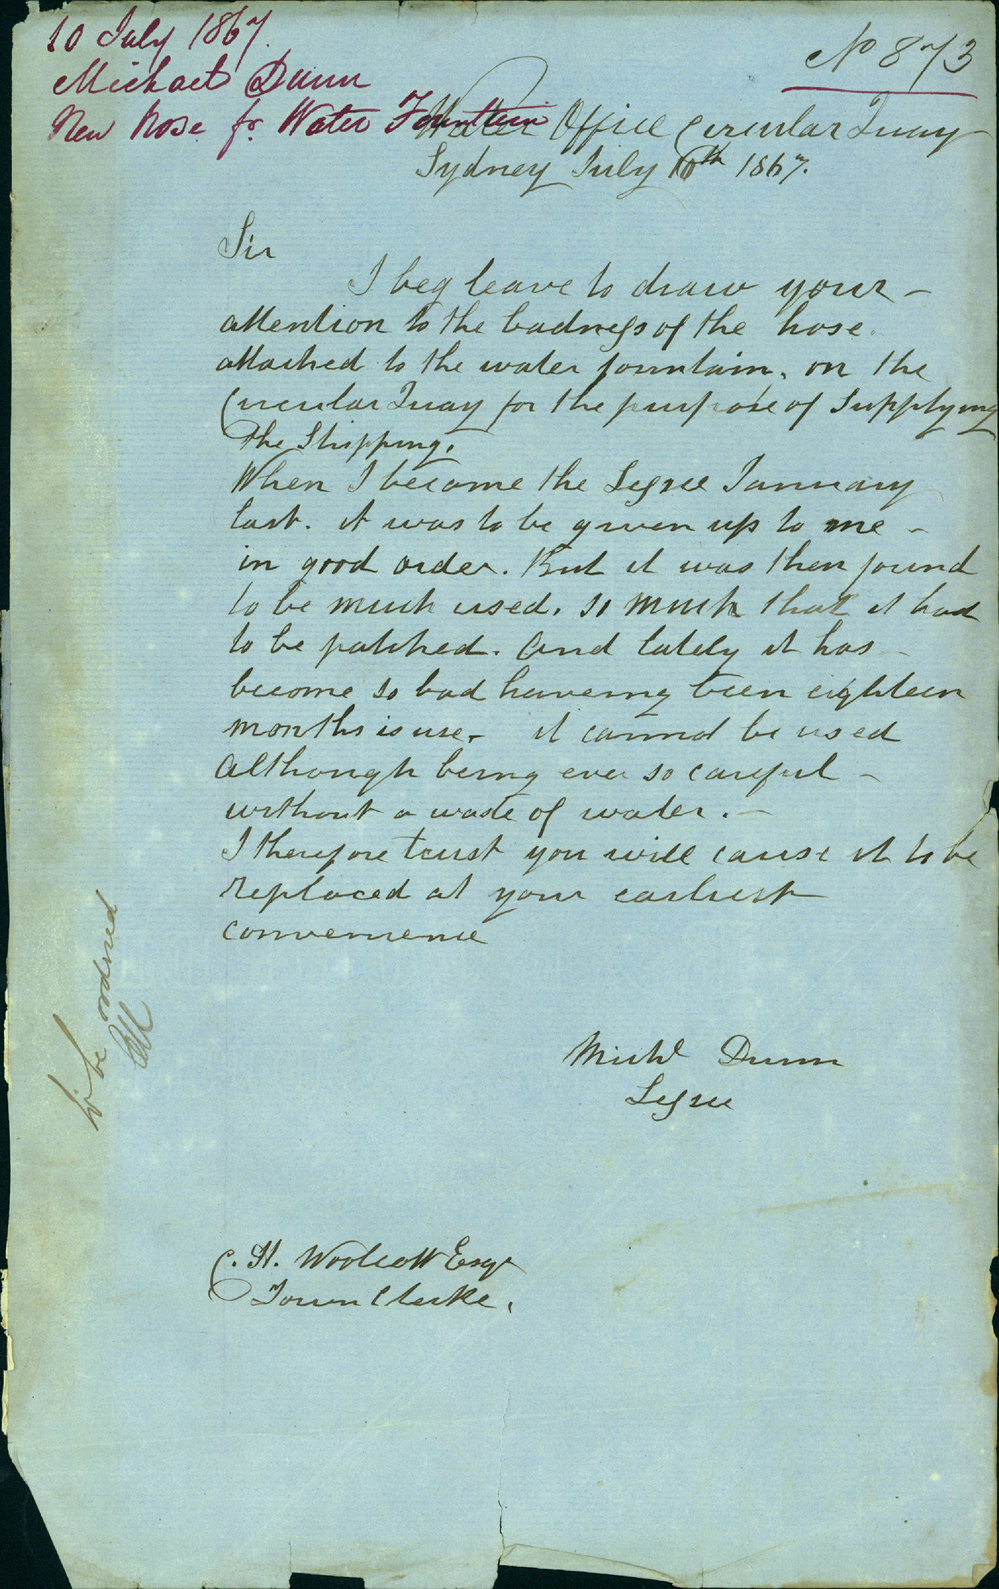 10 July 1867.
Michael Dunn
New Hose for Water Fountain
No 873
Water Office Circular Quay
Sydney July 10th 1867.
Sir
I beg leave to draw your -
attention to the badness of the hose.
attached to the water fountain, on the
Circular Quay for the purpose of Supplying
the Shipping.
When I become the Lessee January
last. it was to be given up to me -
in good order. But it was then found
to be much used. so much that it had
to be patched. And lately it has -
become so bad haveing been eighteen
months is use - it cannot be used
Although being ever so careful -
without a waste of water. -
I therefore trust you will cause it to be
replaced at your earliest
convenience
Michl Dunn
Lessee
C. H. Woolcott Esqr
Town Clerke.
to be ordered